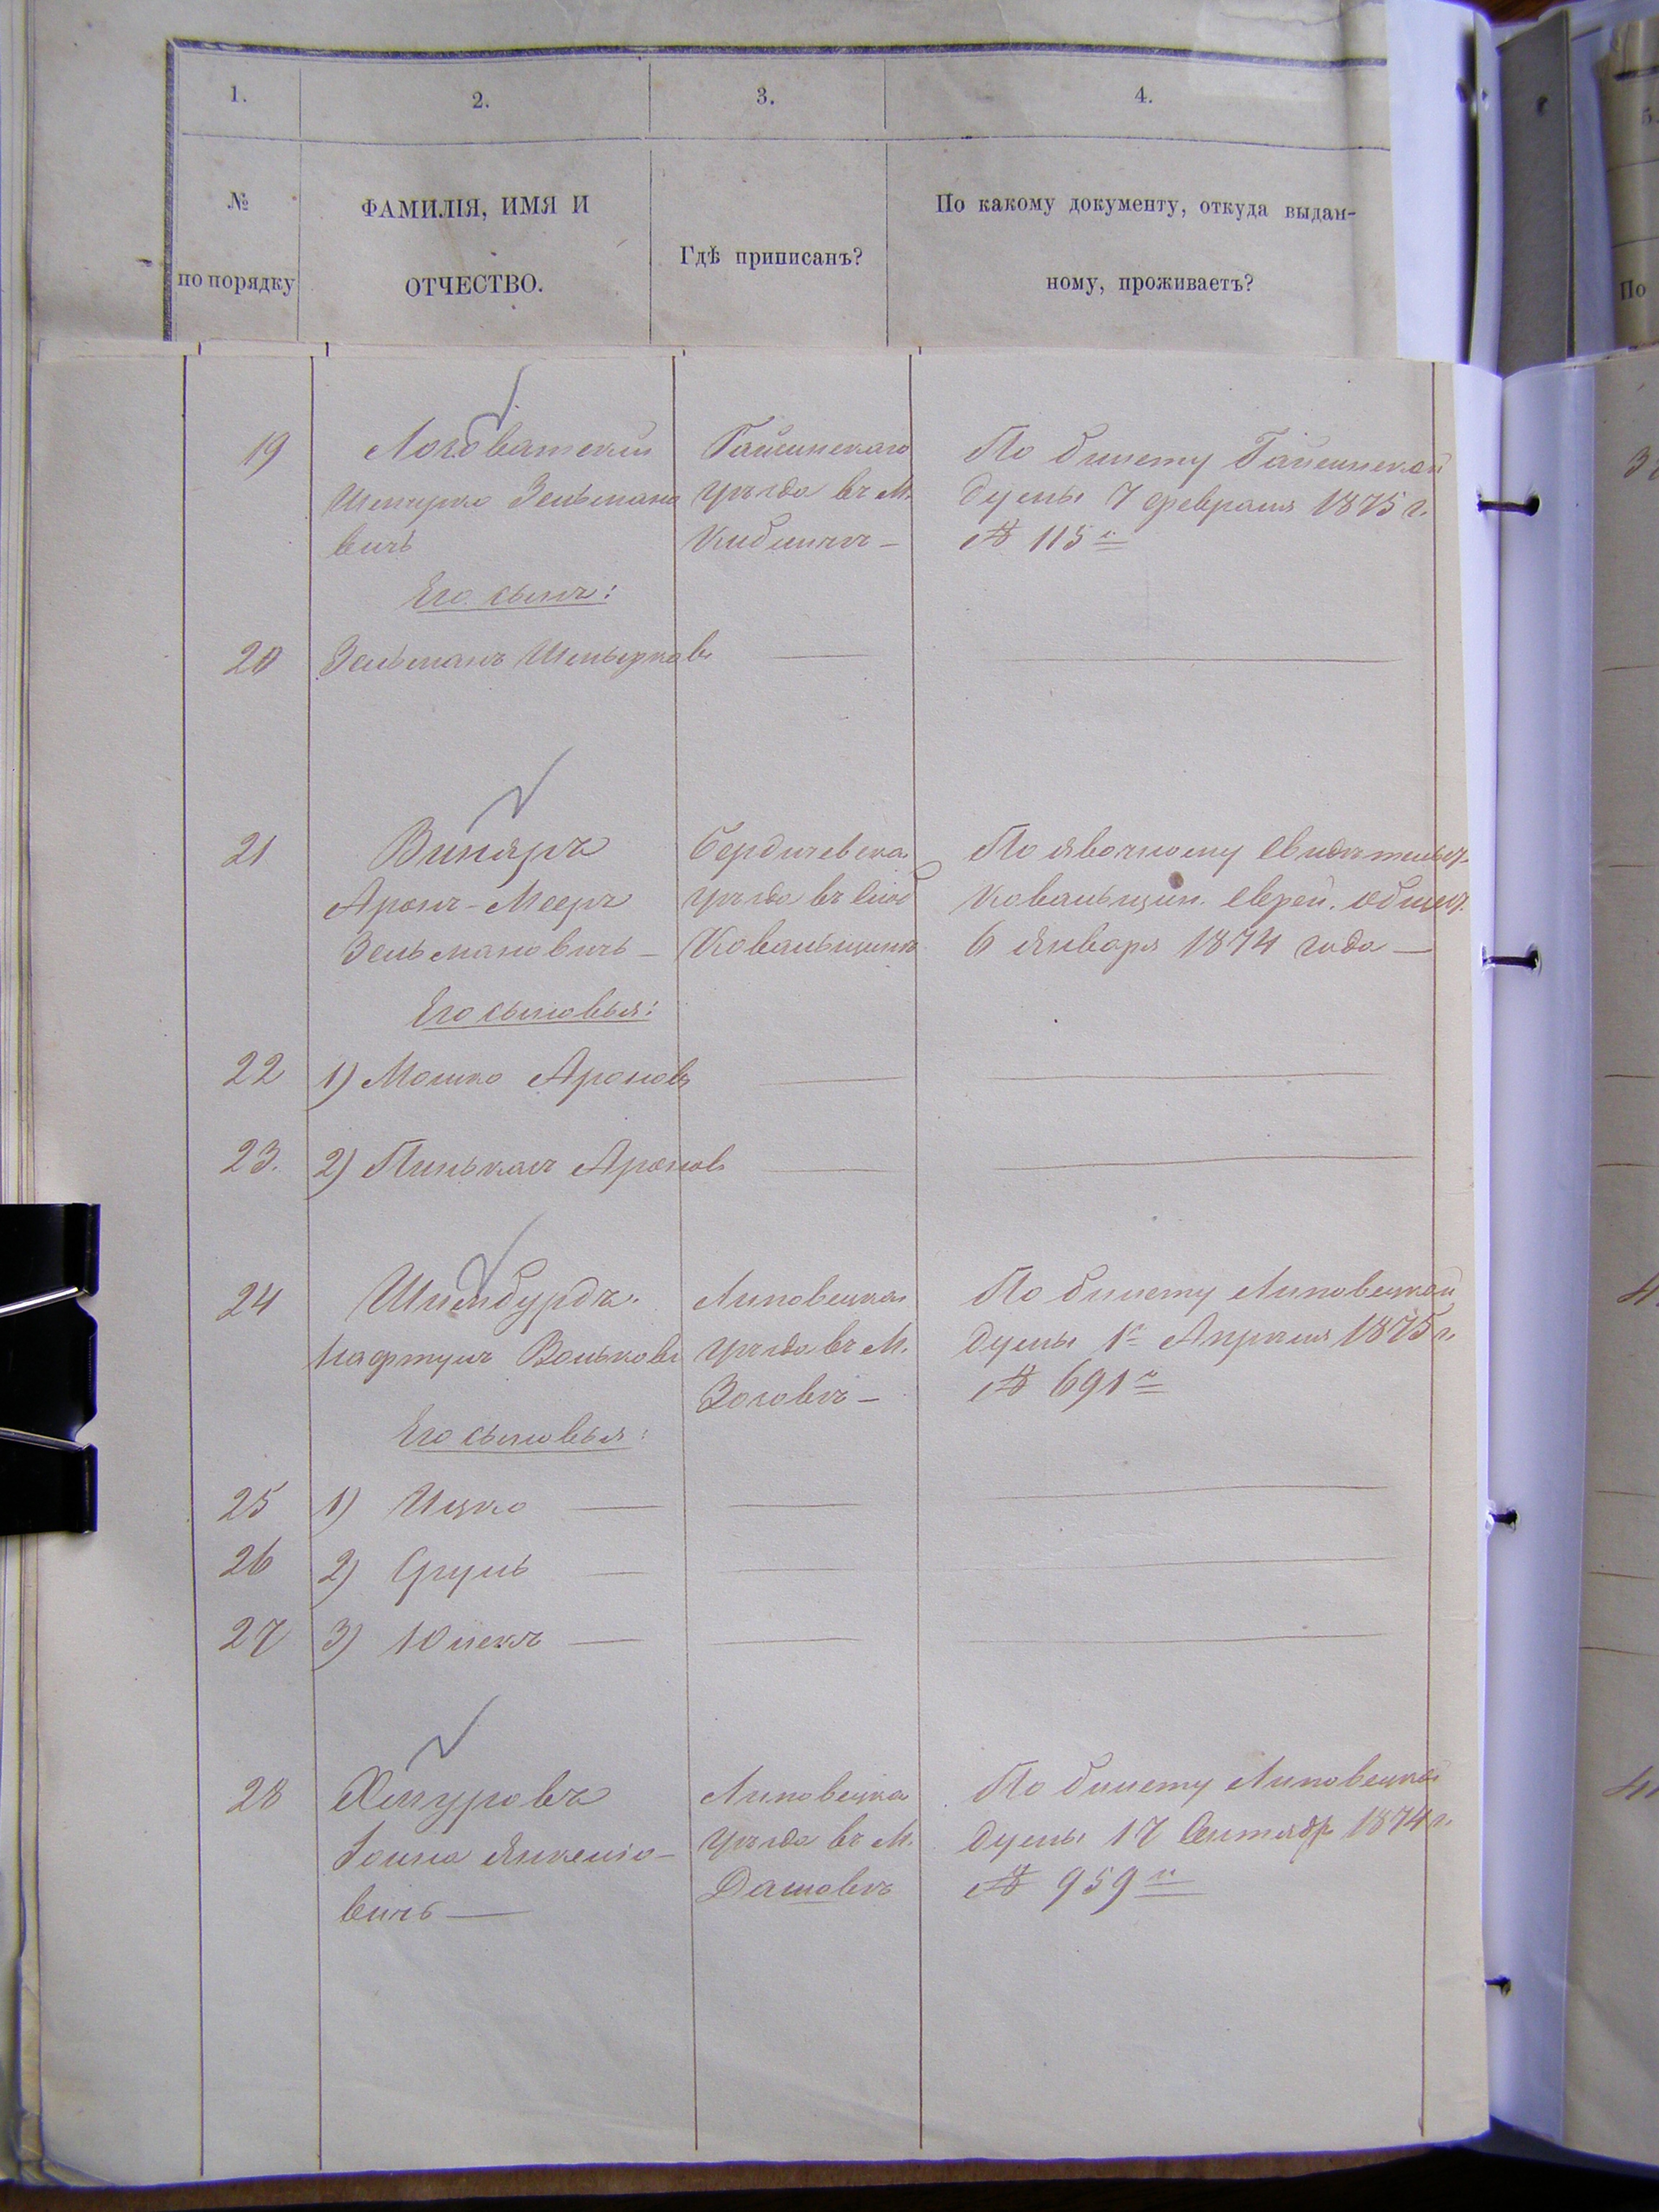 1.
2.
3.
4.
№
по порядку
ФАМИЛІЯ, ИМЯ И
ОТЧЕСТВО.
Гдѣ приписанъ?
По какому документу, откуда выдан-
ному, проживаетъ?
5.
По
19
Логоватскій
Шмерко Зельмано
вичъ
Гайсинскаго
уѣзда въ м.
Кибличъ –
По билету Гайсинской
думы 7 февраля 1875 г.
№ 115
Его сынъ:
20
Зельманъ
21
Виняръ
Аронъ-Мееръ
Зельмановичъ –
Бердичевска
уѣзда въ
По явочному свидѣтельст.
еврей. общест.
6 Января 1874 года –
Его сыновья:
22
1) Мошко Ароновъ
23.
2) Пинькасъ Ароновъ
24
Нафтулъ Вольковъ
Липовецкаг
уѣзда въ м.
Зозовъ –
По билету Липовецкой
думы 1 Апрѣля 1875 г.
№ 691
Его сыновья:
25
1) Ицко –
26
2) Сруль –
27
3)
28
Хмуровъ
вичъ –
Липовецка
уѣзда въ м.
Дашовъ
По билету Липовецкой
думы 17 Сентябр 1874 г.
№ 959